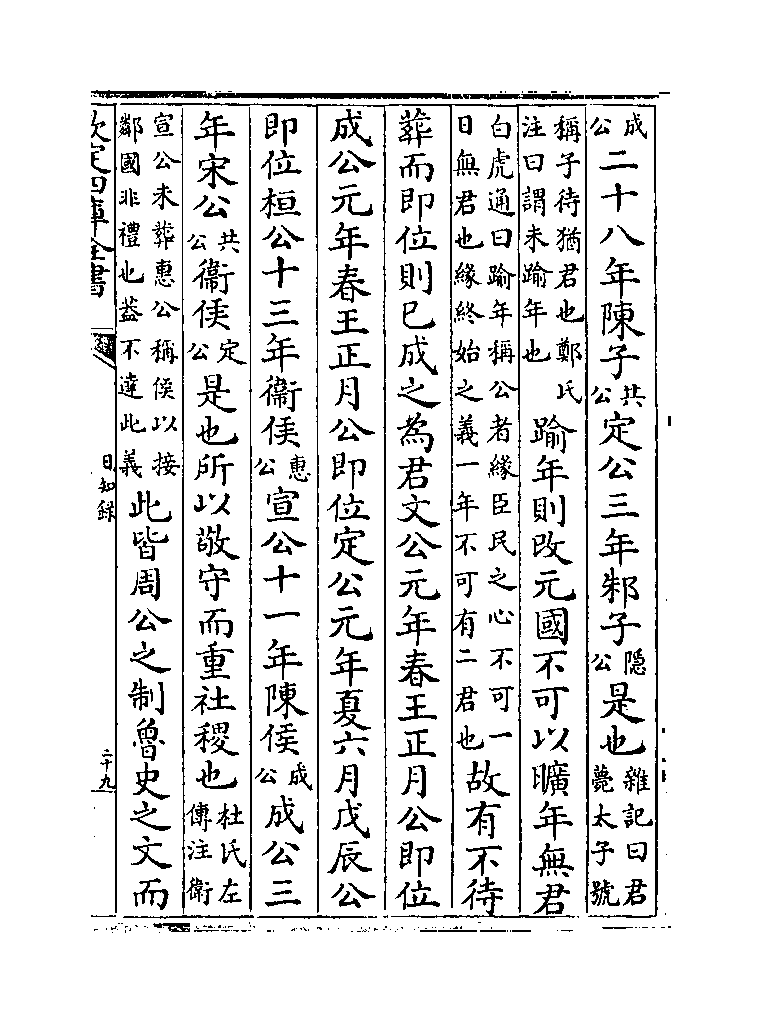 成公二十八年陳子共公定公三年邾子隱公是也雜記曰君薨太子號
稱子待猶君也鄭氏注曰謂未踰年也踰年則改元國不可以曠年無君
白虎通曰踰年稱公者緣臣民之心不可一日無君也緣終始之義一年不可有二君也故有不待
葬而即位則已成之為君文公元年春王正月公即位
成公元年春王正月公即位定公元年夏六月戊辰公
即位桓公十三年衞侯惠公宣公十一年陳侯成公成公三
年宋公共公衞侯定公是也所以敬守而重社稷也杜氏左傳注衞
宣公未葬惠公稱侯以接鄰國非禮也葢不達此義此皆周公之制魯史之文而
欽定四庫全書
日知錄
二十九